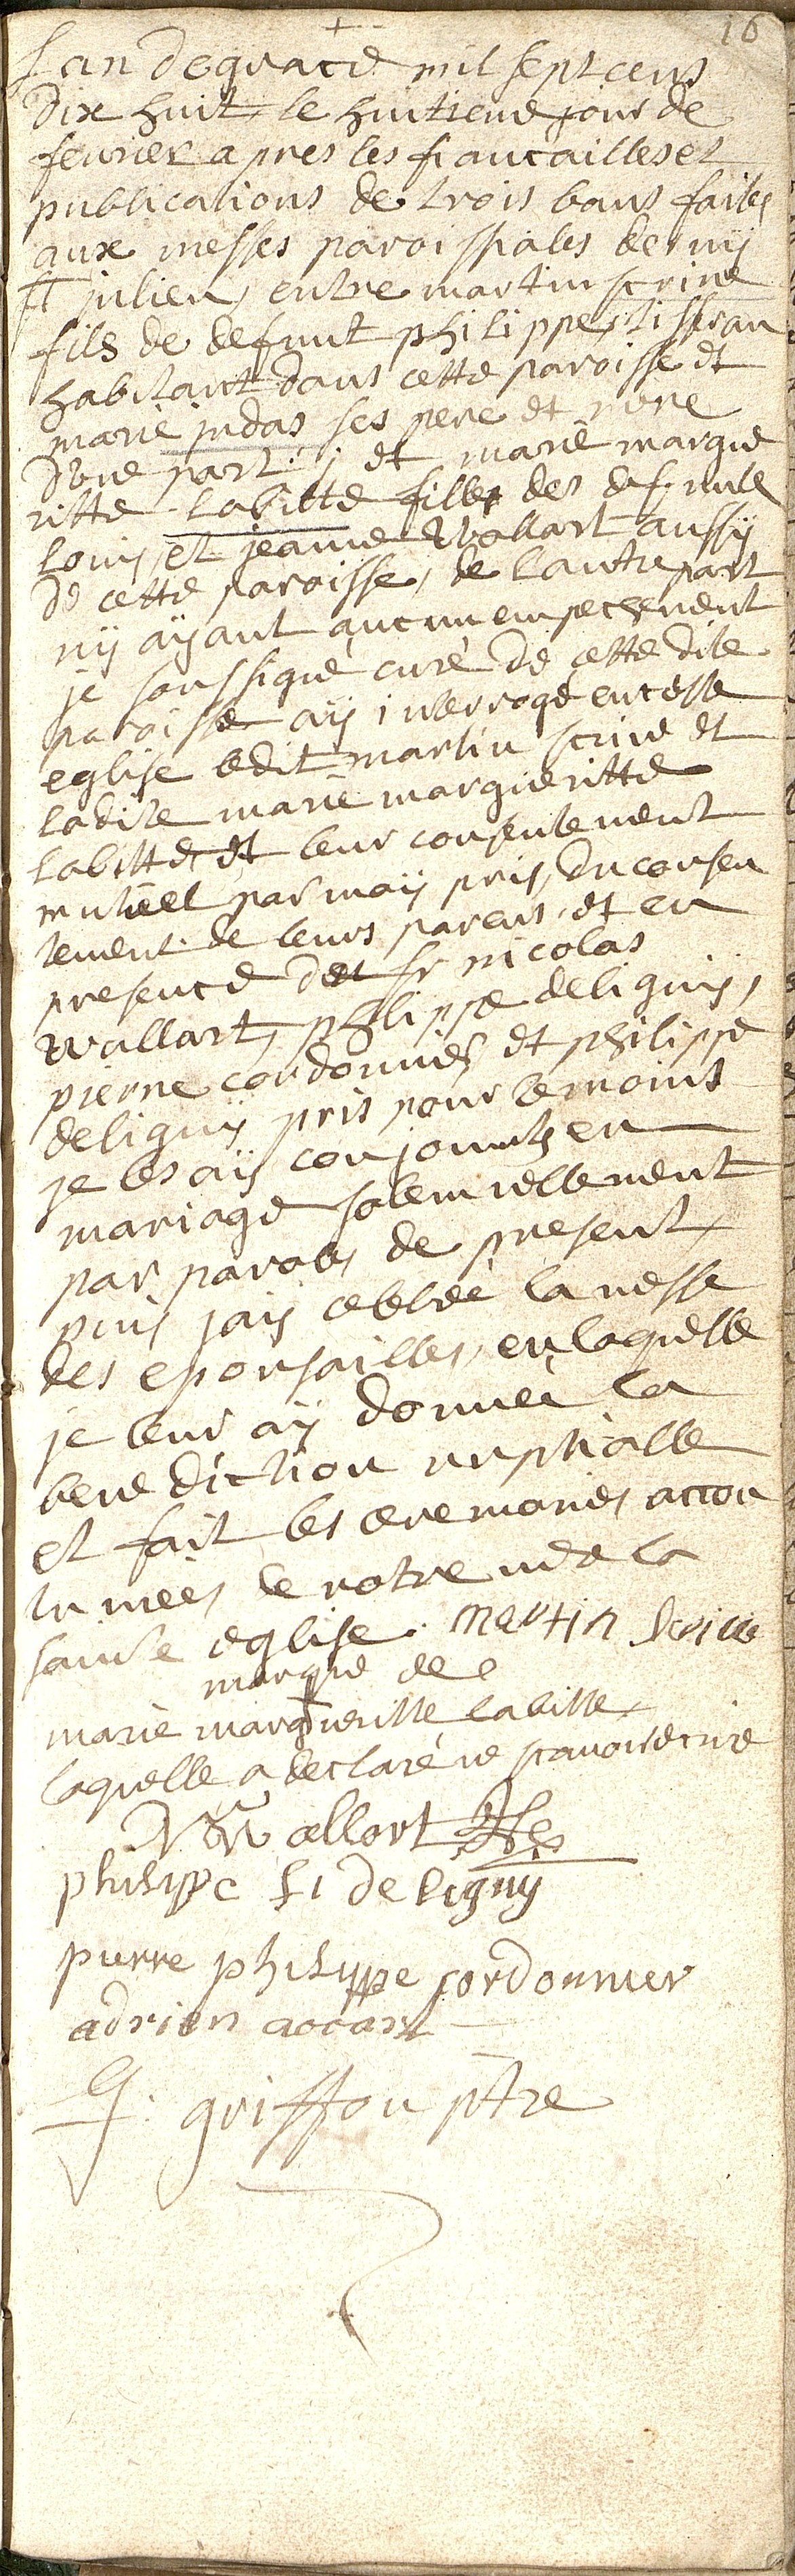 16
Lan de grace mil sept cens
dix huit le huitieme jour de
fevrier apres les fiancailles et
publications de trois bans faites
aux messes paroissiales de
st julien, entre martin scrive
fils de defunt philippe, tisseran
habitant dans cette paroisse et
marie judas ses pere et mere
dune part; et marie margue
ritte labitte fille des defunts
louis et jeanne Wallart aussÿ
de cette paroisse, de lautre part
nÿ aÿant aucun empechement
je soussigné curé de cette dite
paroisse aÿ interrogé en cette
eglise ledit martin scrive et
ladite marie margueritte
labitte et leur consentement
mutuel par moÿ pris, du consen
tement de leurs parens, et en
presence de sr nicolas
Wallart, philippe deligniÿ,
pierre cordonnier et philippe
deligniÿ pris pour temoins
je les aÿ conjoints en
mariage solemnellement
par paroles de present,
puis jaÿ celebré la messe
des epousailles, en laquelle
je leur aÿ donnée la
benediction nuptialle
et fait les ceremonies accou
tumées de notre mere la
sainte eglise. Martin Scrive
marque de
marie margueritte labitte
laquelle a declaré ne scavoir ecrire
Wallart
philippe de ligny
pierre philippe cordonnier
adrien
G. griffon ptre